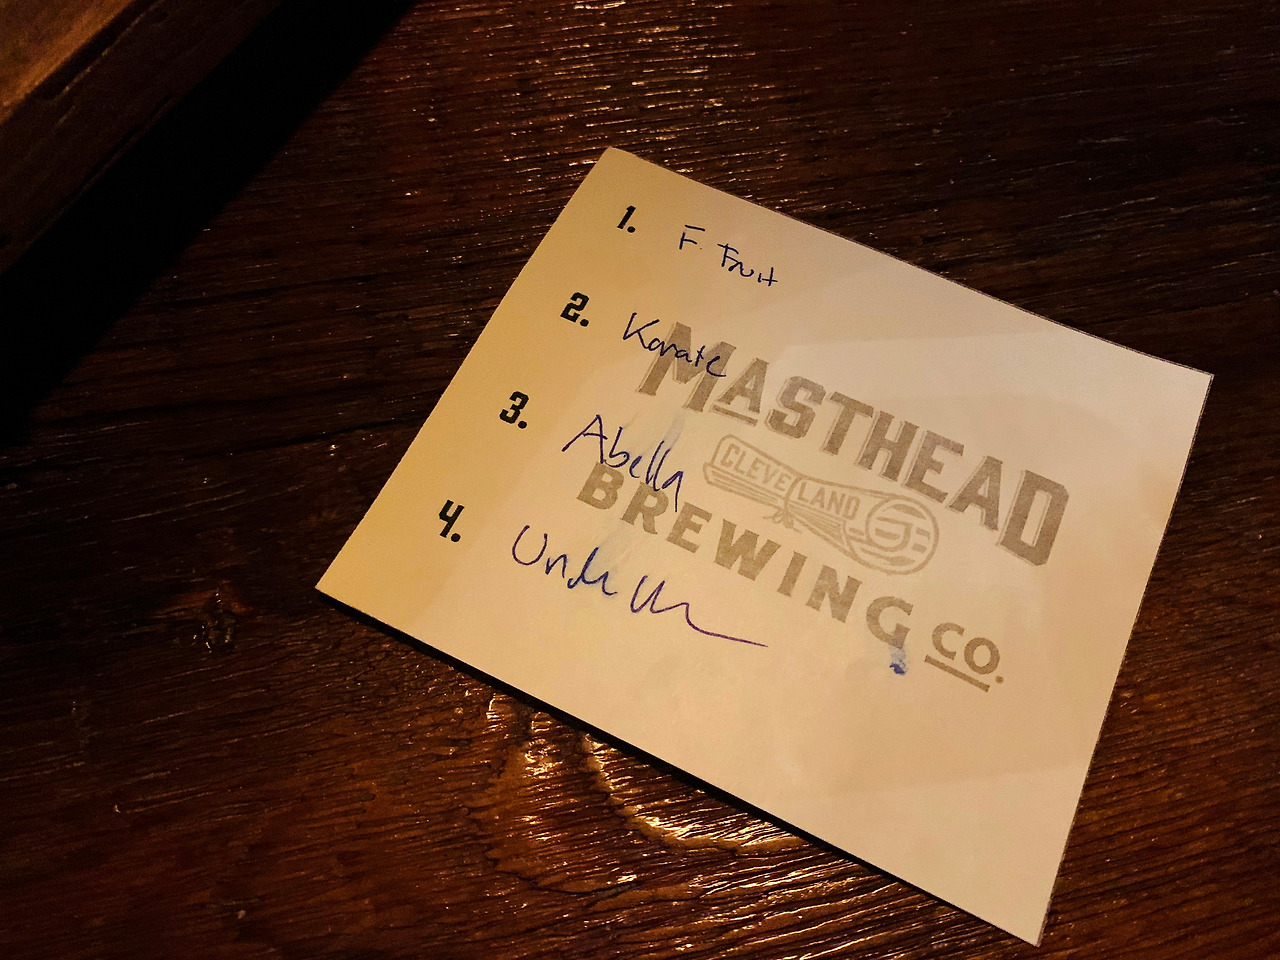 1. F. Fruit
2. Karate
3. Abella
4.
MASTHEAD
CLEVELAND
BREWING CO.